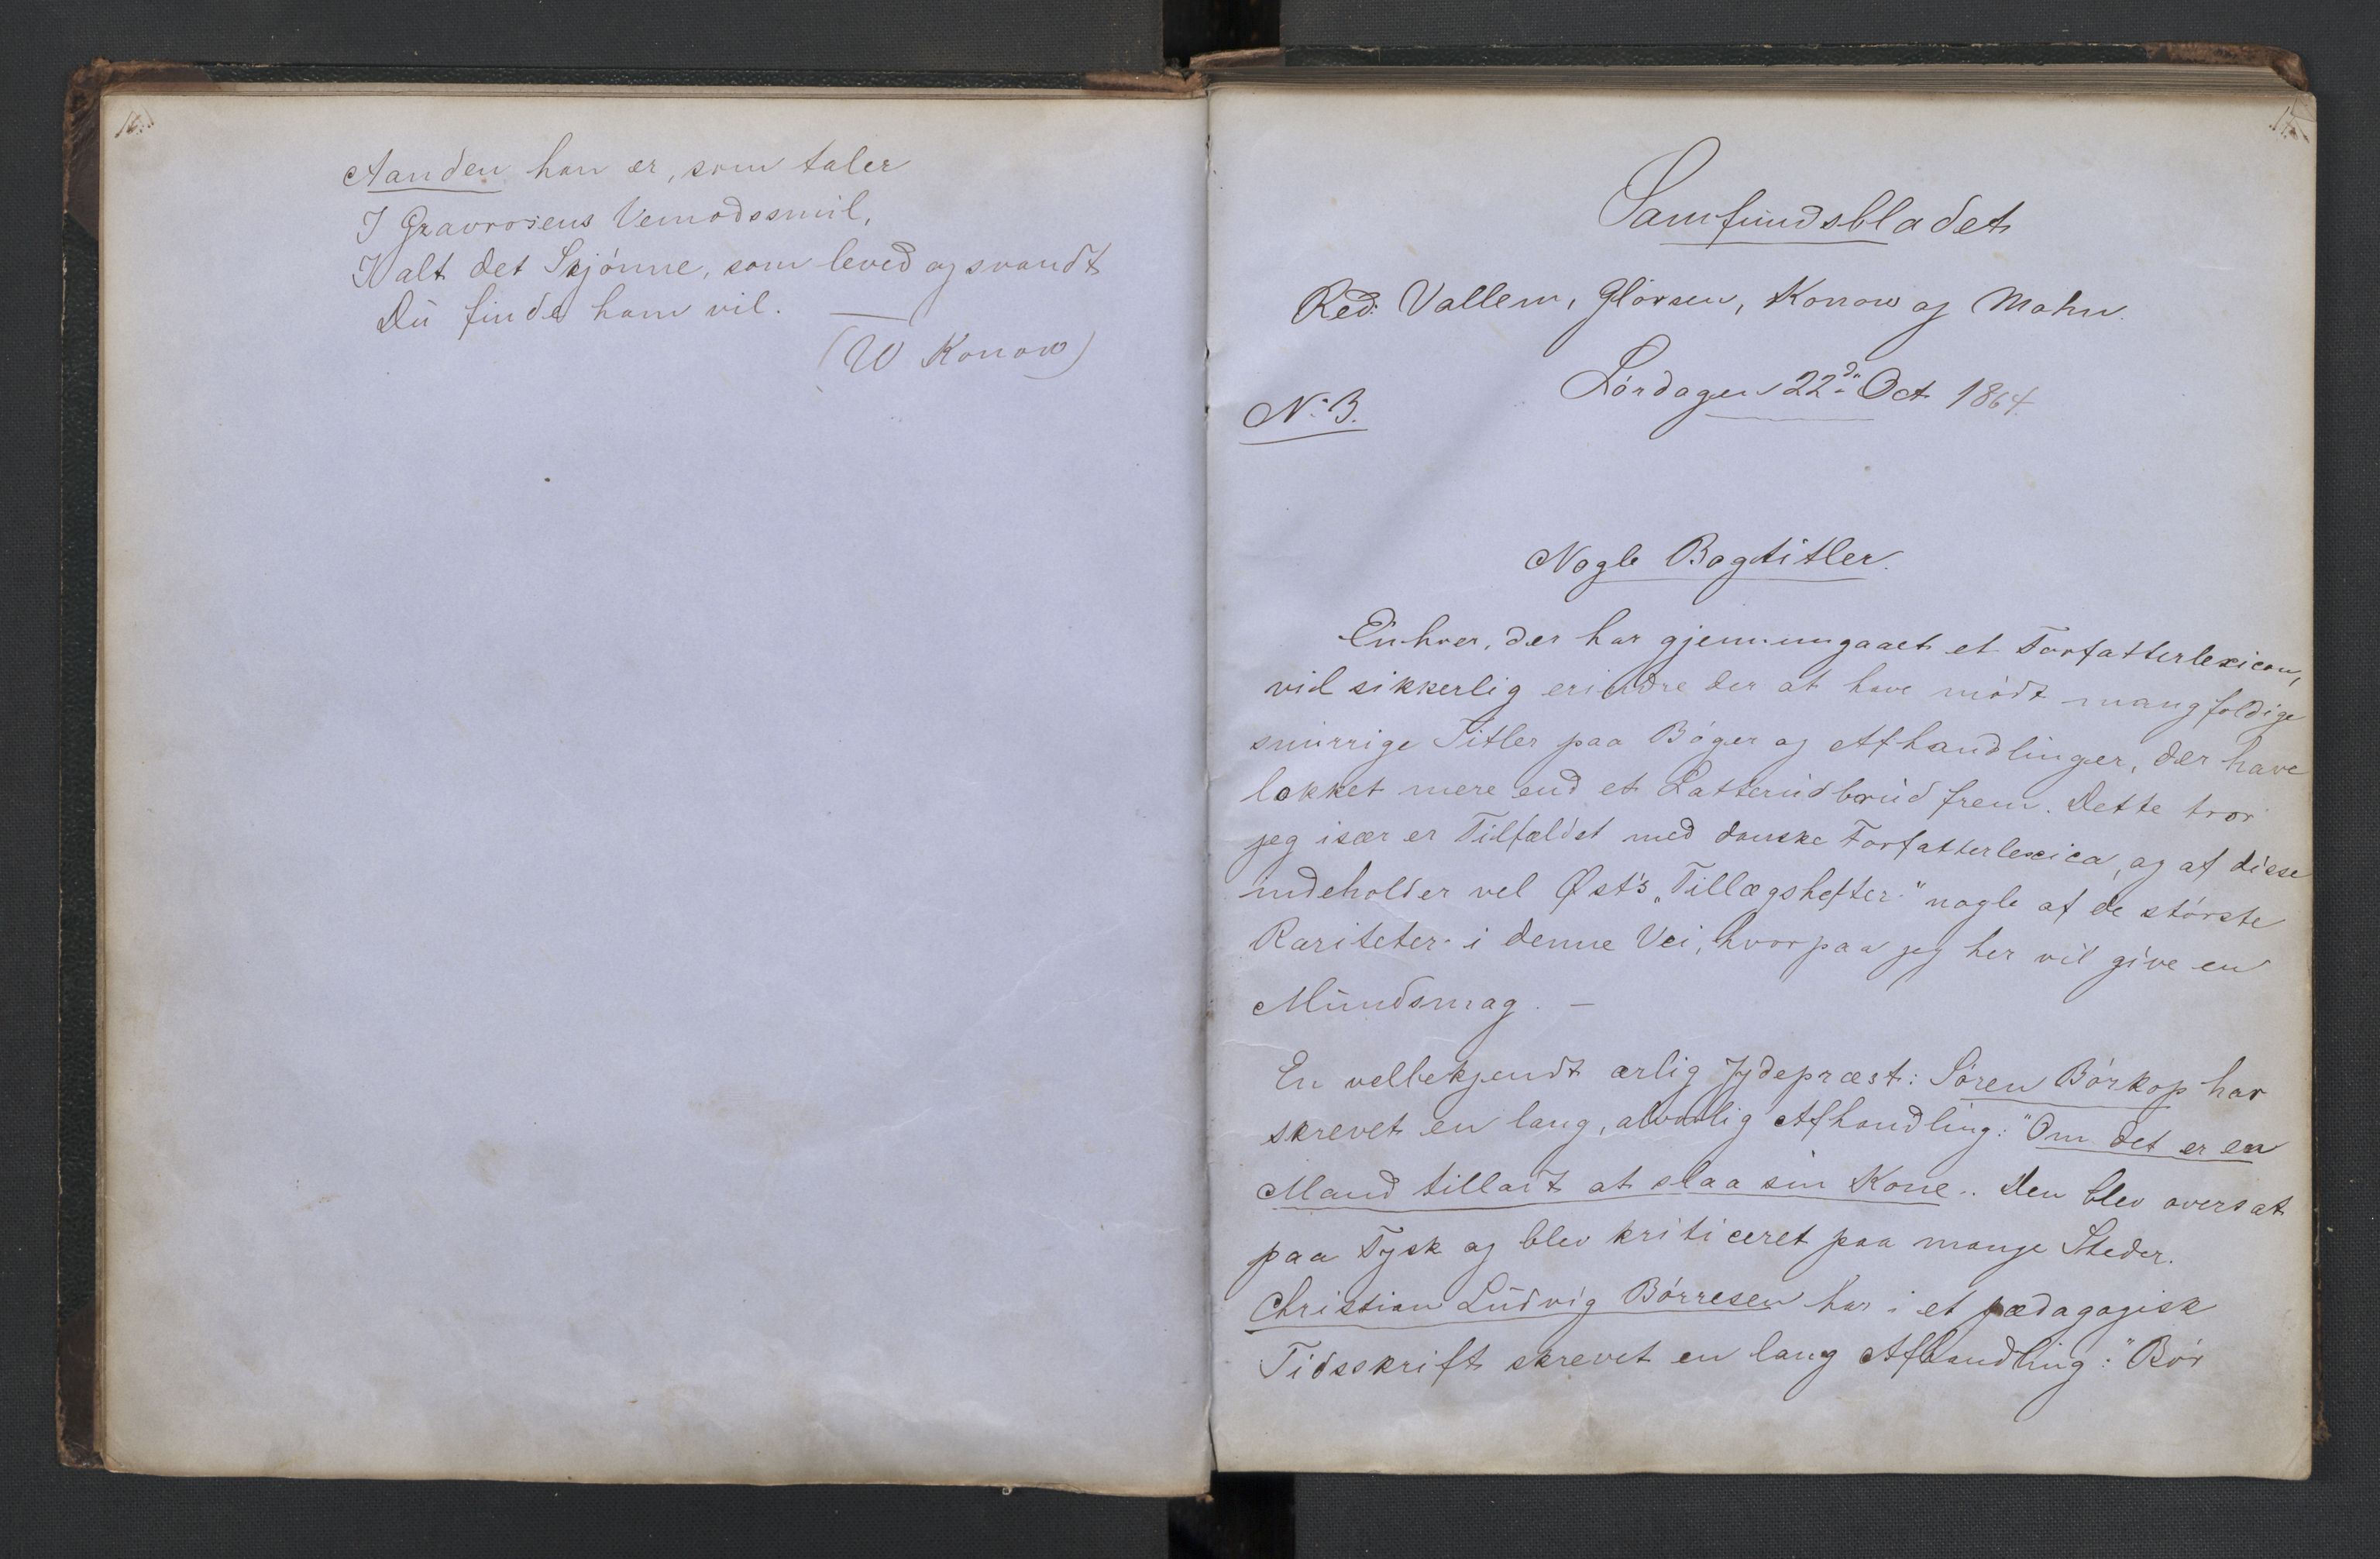 Aanden han er, som taler
I Gravrosens Vemodssmil,
I alt det Skjönne, som leved og svandt
Du finde ham vil. —
(W Konow)
Samfundsbladet
Red: Vallem, Glörsen, Konow og Mohn.
Lördagen 22de Oct 1864.
No 3.
Nogle Bogtitler.
Enhver, der har gjennemgaaet et Forfatterlexicon,
vil sikkerlig erindre der at have mödt mangfoldige
snurrige Titler paa Böger og Afhandlinger, der have
lokket mere end et Latterudbrud frem. Dette tror
jeg især er Tilfældet med danske Forfatterlexica, og af disse
indeholder vel Øst's „Tillægshefter" nogle af de störste
Rariteter i denne Vei, hvorpaa jeg her vil give en
Mundsmag. —
En velbekjendt ærlig Jydepræst: Sören Börkop har
skrevet en lang, alvorlig Afhandling: "Om det er en
Mand tilladt at slaa sin Kone.. Den blev oversat
paa Tysk og blev kriticeret paa mange Steder.
Christian Ludvig Börresen har i et pædagogisk
Tidsskrift skrevet en lang Afhandling: "Bör